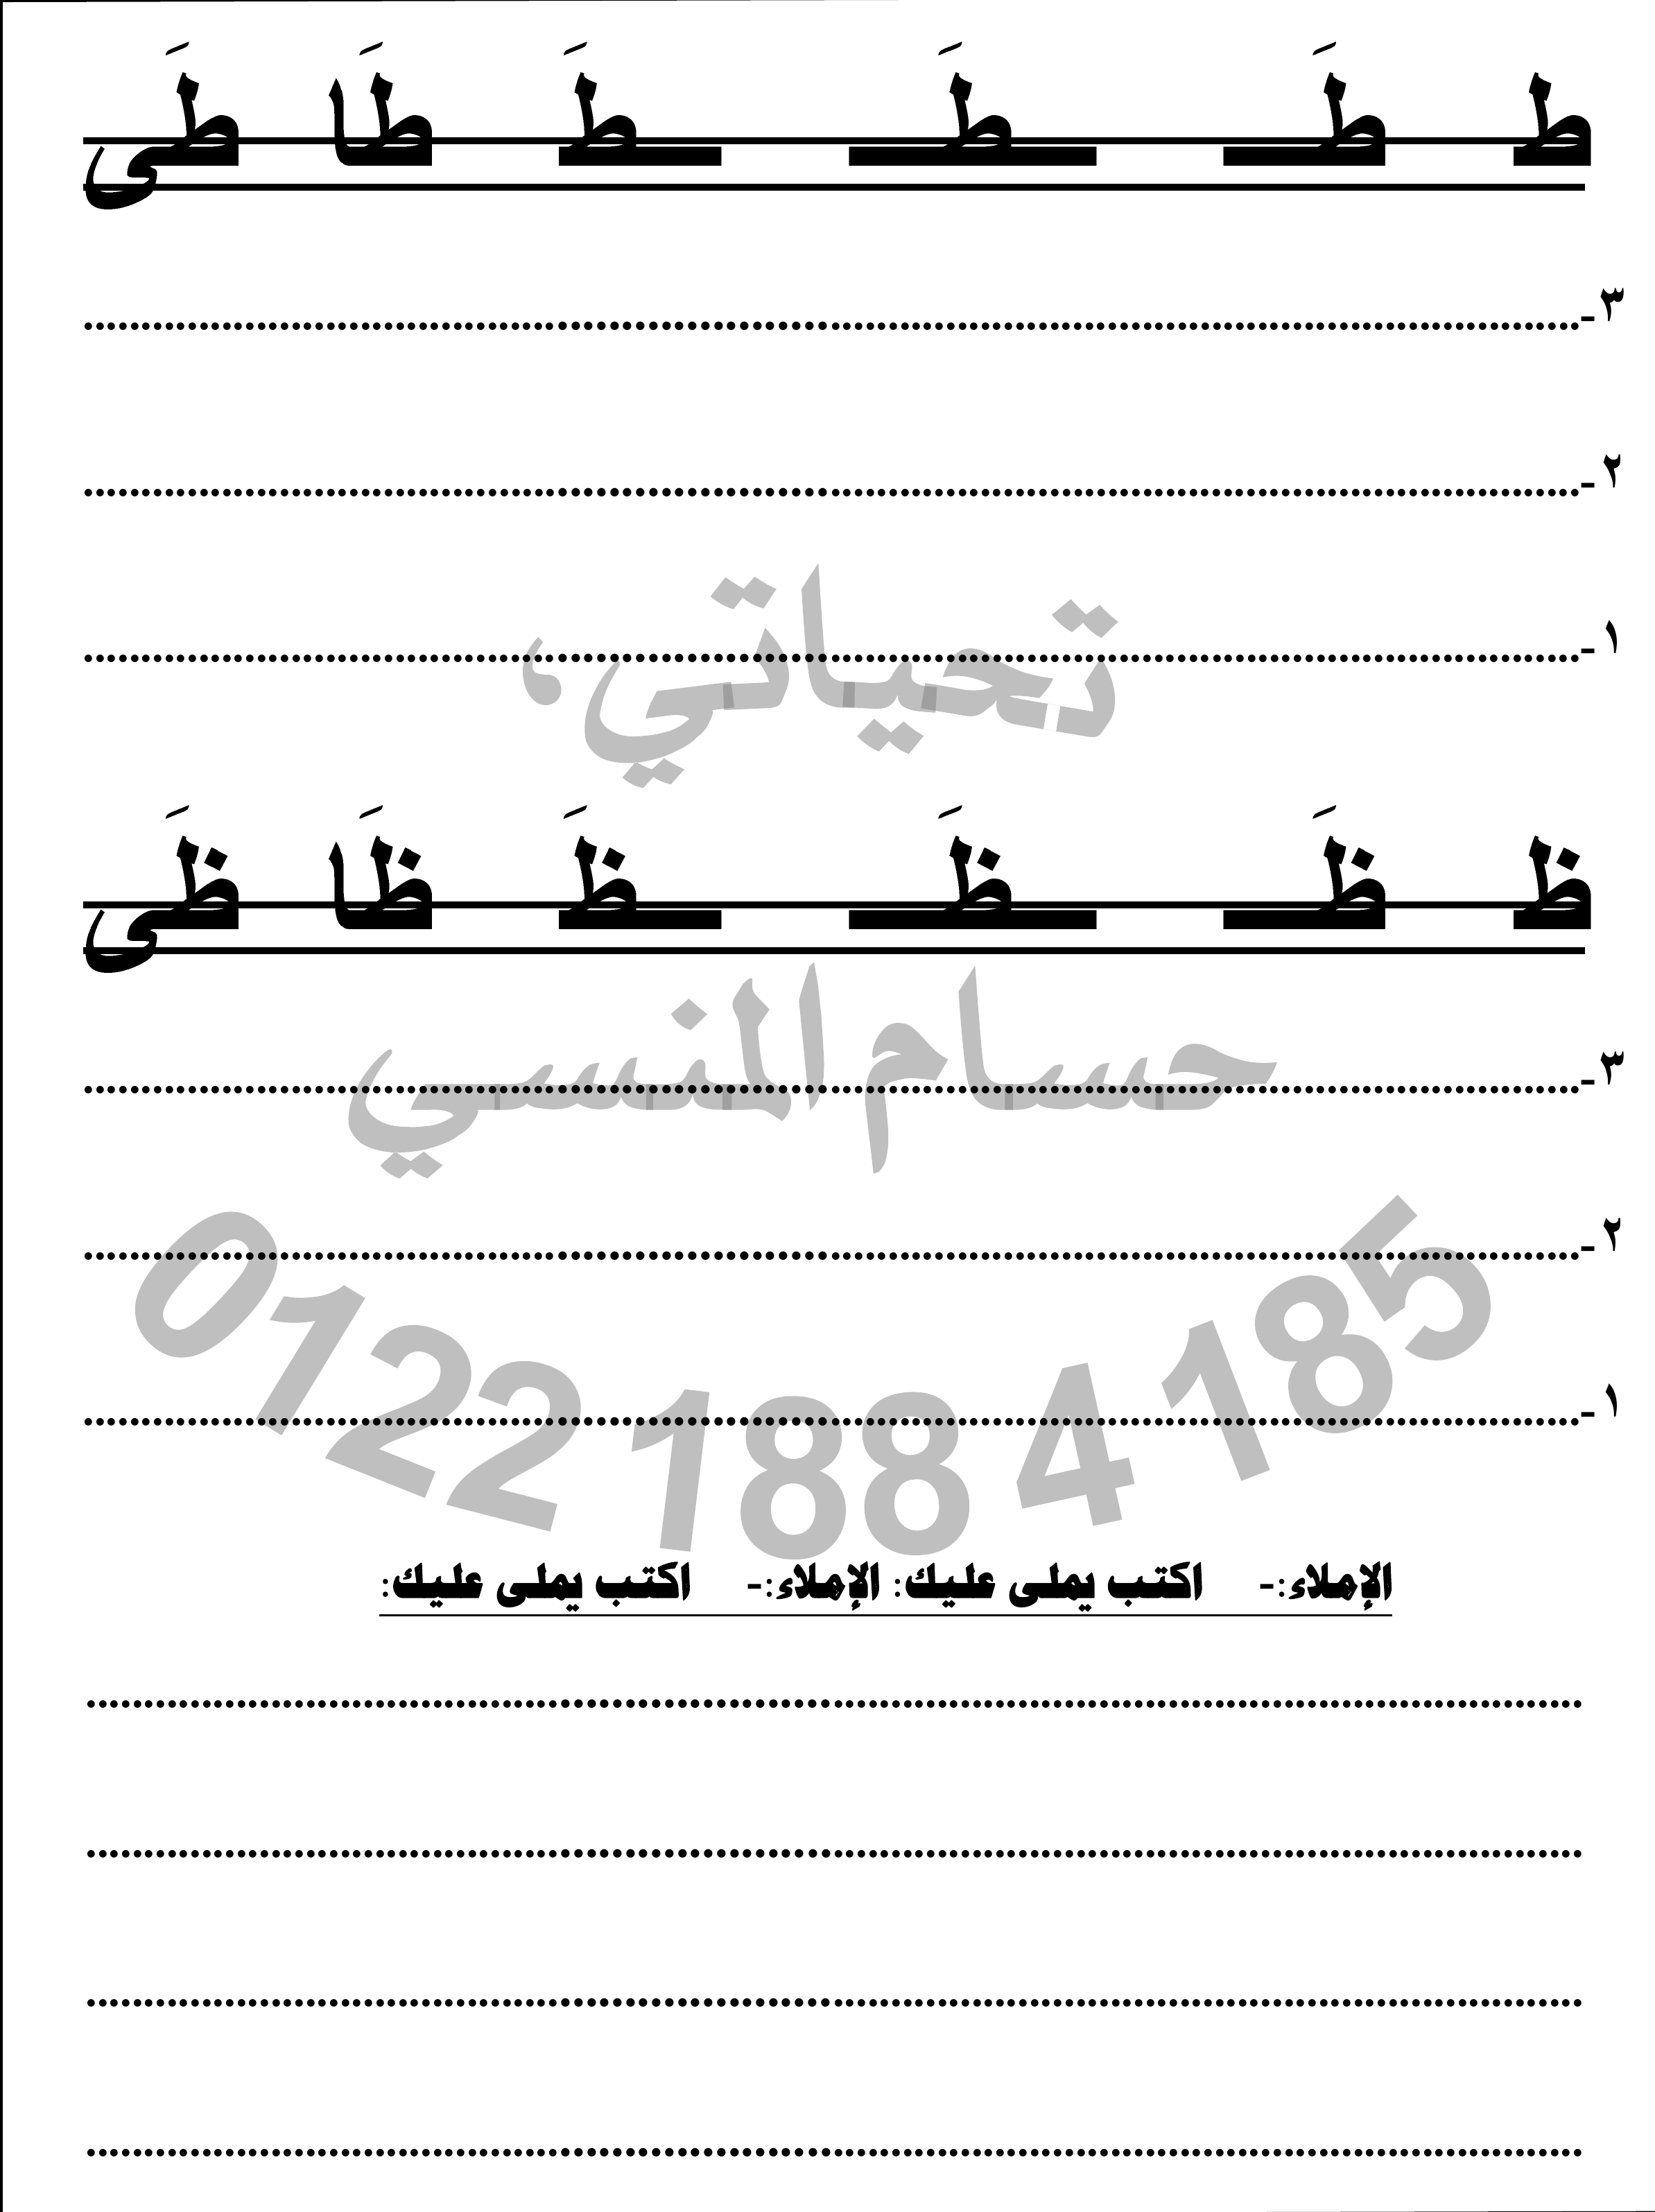 ط طَـ ـطَـ ـطَ طَا طَى
٣-
٢-
١-
تحياتي،
ظ ظَـ ـظَـ ـظَ ظَا ظَى
حسام المنسي
٣-
٢-
0122 188 4 185
١-
الإملاء:- اكتب يملى عليك: الإملاء:- اكتب يملى عليك: